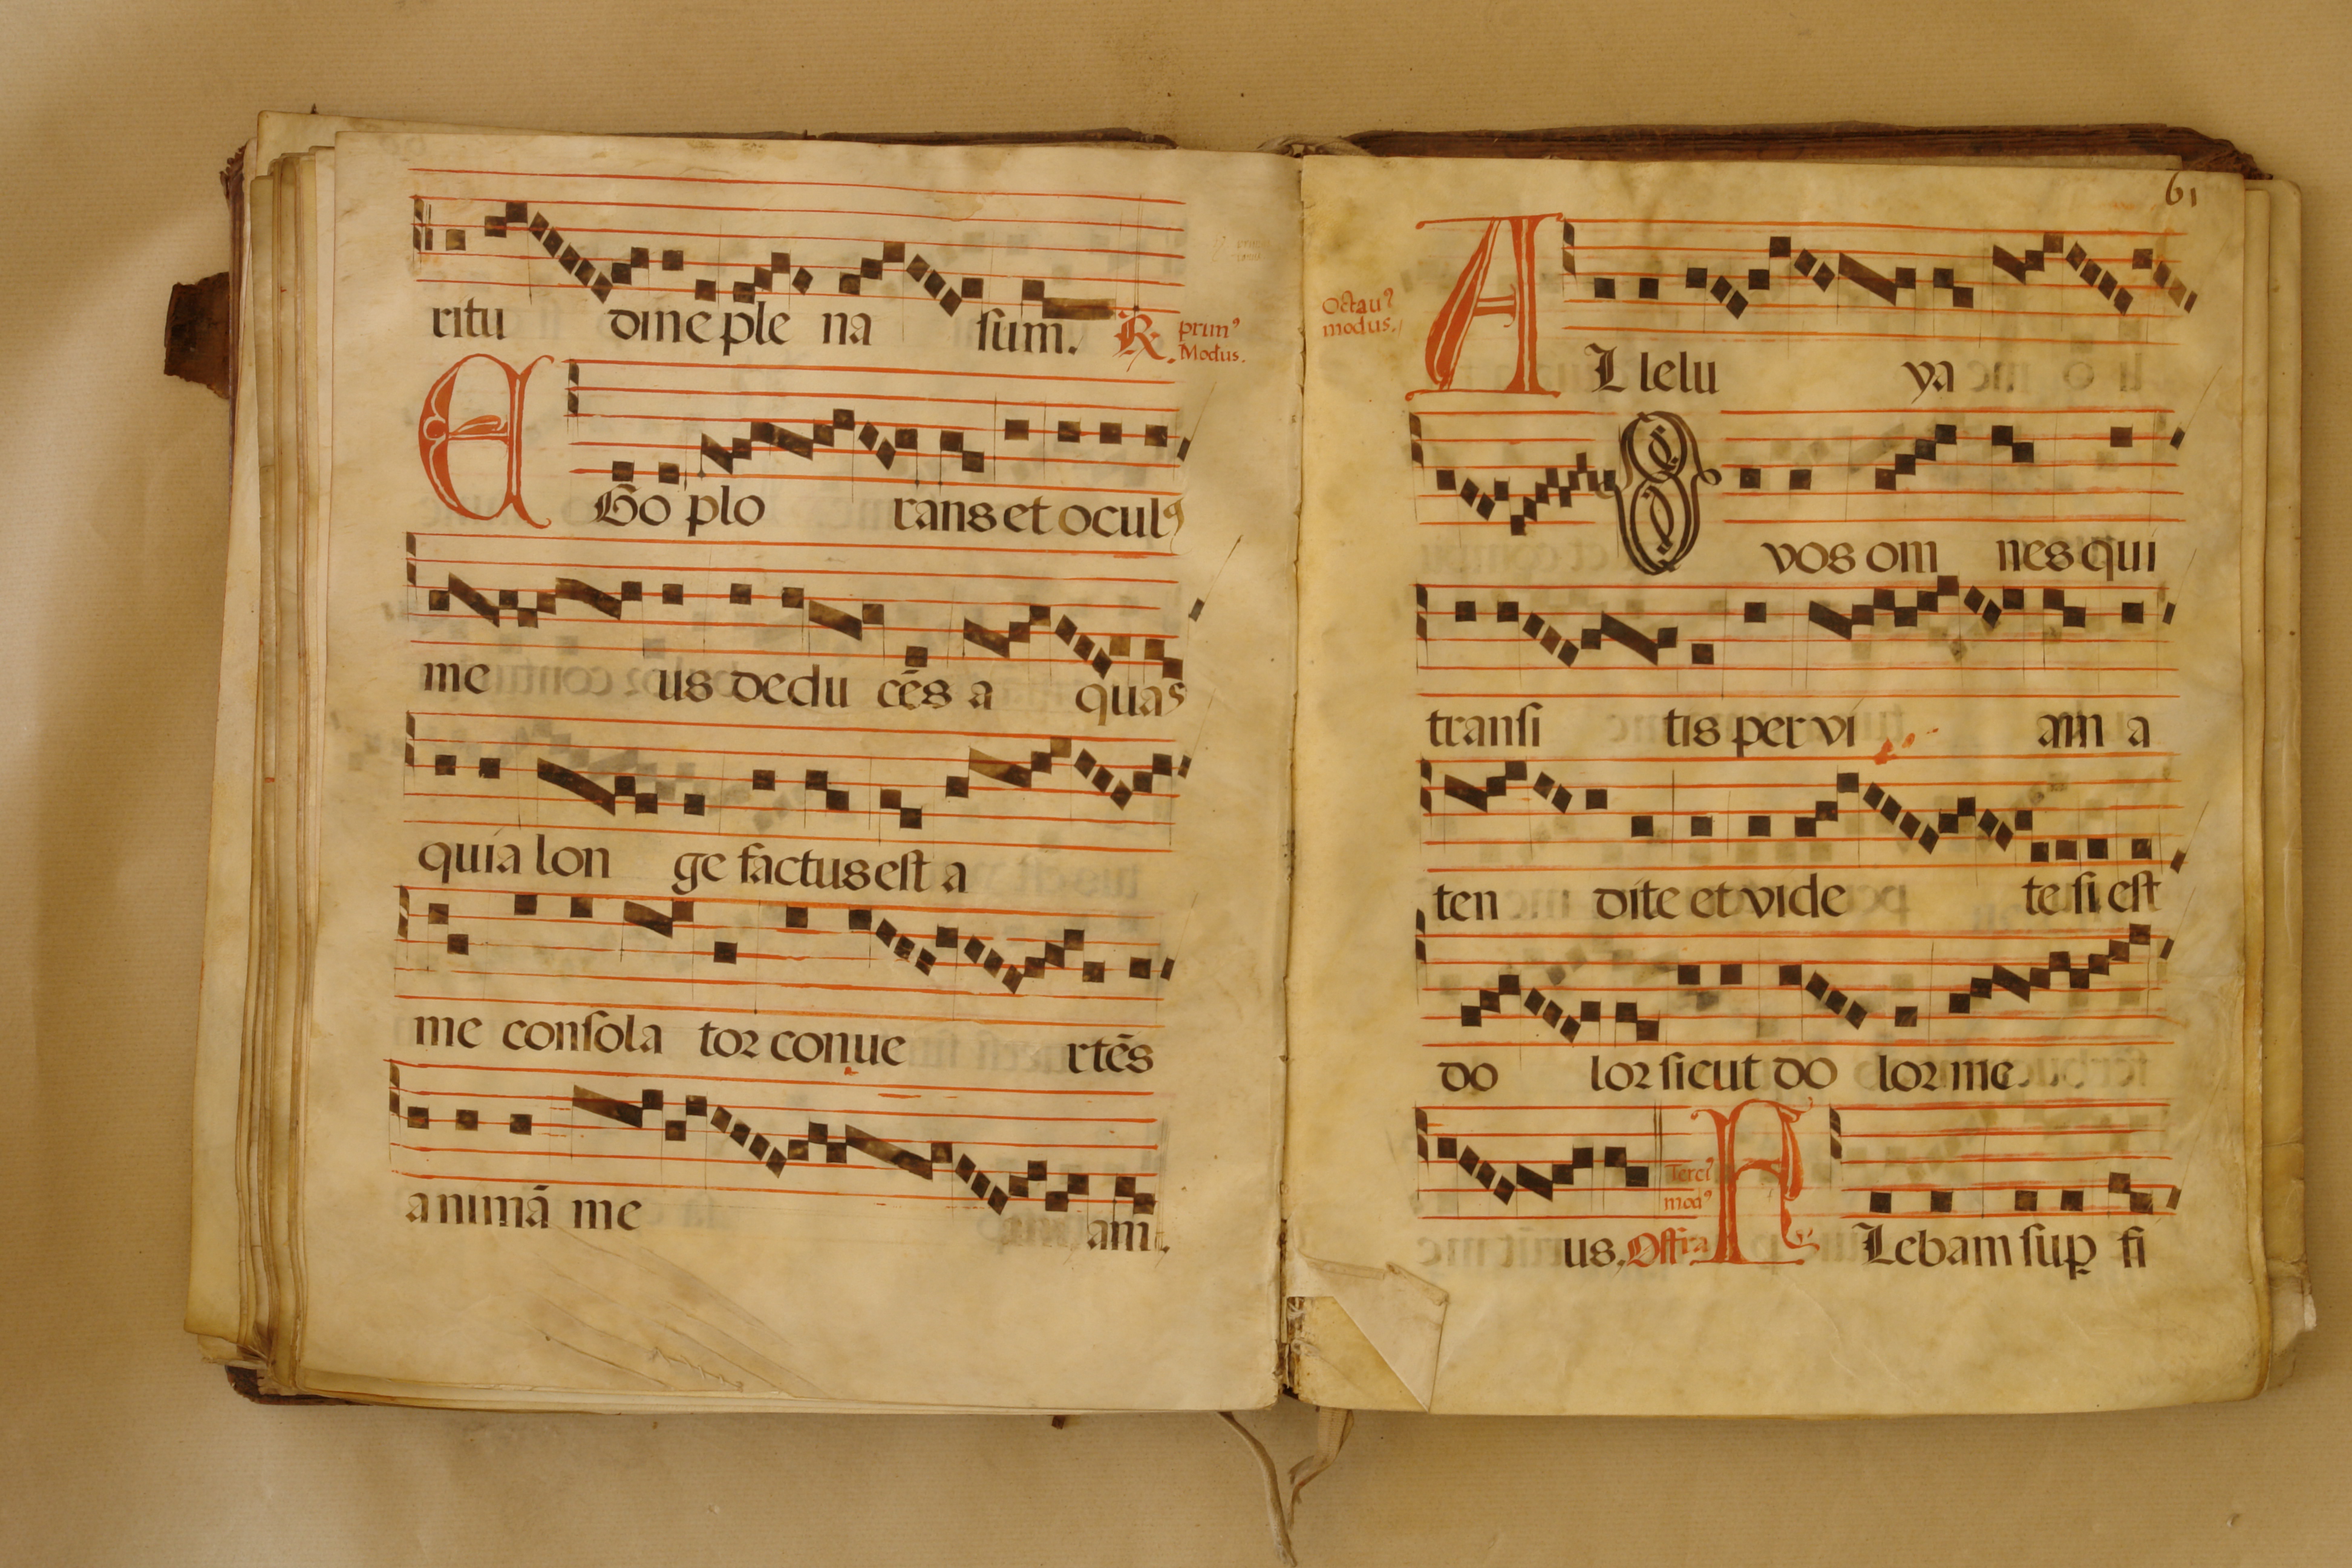 ritu dine ple na sum. R. prim⁹
Modus.
E Go plo rans et ocul⁹
me us dedu cēs a quas
quia lon ge factus est a
me consola tor conue rtēs
animā me am.
61
Octau⁹
modus.
A L lelu ya
O vos om nes qui
transi tis per vi am a
ten dite et vide te si est
do lor sicut do lor me
Terci⁹
mod⁹
us. Offra F Lebam sup̱ fi